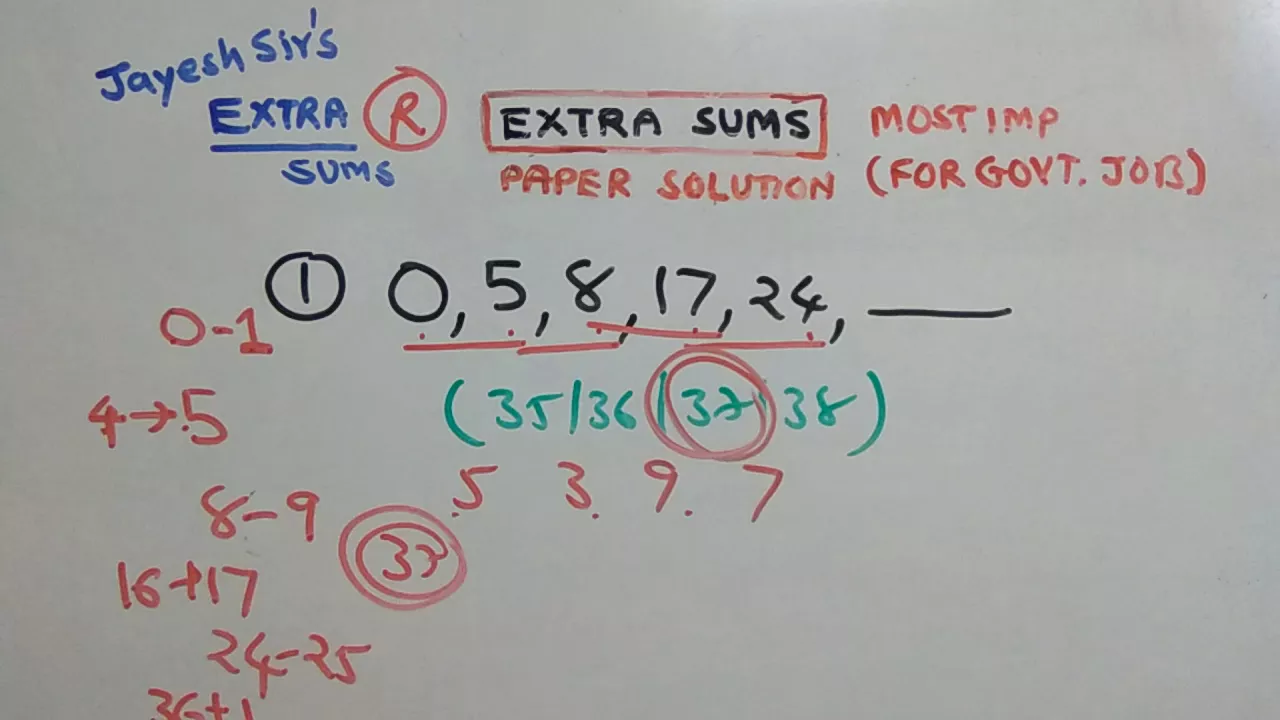 Jayesh Sir's
EXTRA
SUMS
R
EXTRA SUMS
PAPER SOLUTION
MOST IMP
(FOR GOVT. JOB)
① 0, 5, 8, 17, 24, ____
(35/36/37/38)
5 3 9 7
0-1
4→5
8-9
37
16+17
24-25
36+1